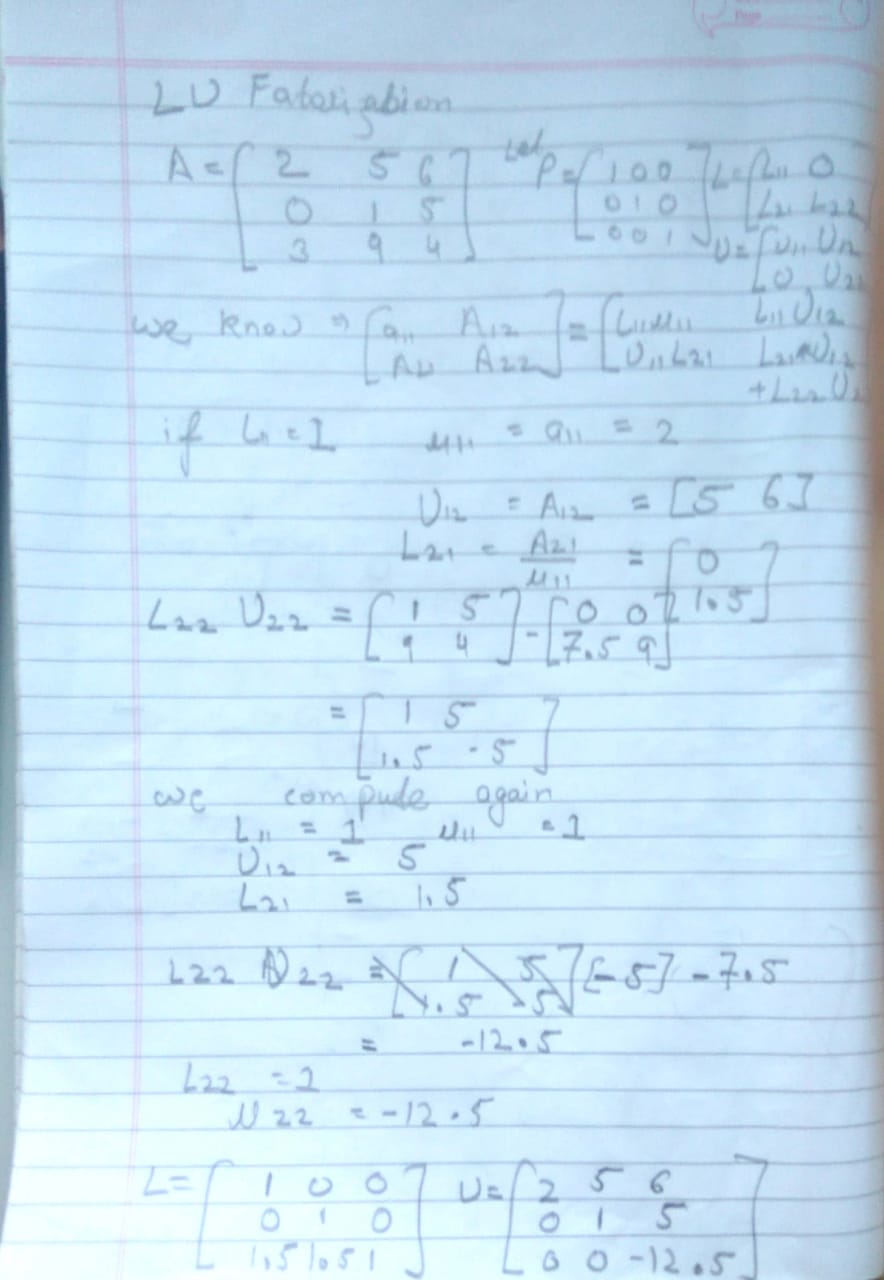 LU Fatorigation
A = [ 2 5 6 ; 0 1 5 ; 3 9 4 ] Let P = [ 1 0 0 ; 0 1 0 ; 0 0 1 ] L = [ L11 0 ; L21 L22 ]
U = [ U11 U12 ; 0 U22 ]
we know ⇒ [ a11 A12 ; A21 A22 ] = [ L11 u11 L11 U12 ; U11 L21 L21 U12 + L22 U2
if L11 = 1 u11 = a11 = 2
U12 = A12 = [5 6]
L21 = A21 / u11 = [ 0 ; 1.5 ]
L22 U22 = [ 1 5 ; 9 4 ] - [ 0 0 ; 7.5 9 ]
= [ 1 5 ; 1.5 -5 ]
we compude again
L11 = 1 u11 = 1
U12 = 5
L21 = 1.5
L22 U22 = [ 1 5 ; 1.5 -5 ] [-5] - 7.5
= -12.5
L22 = 1
u22 = -12.5
L = [ 1 0 0 ; 0 1 0 ; 1.5 1.5 1 ] U = [ 2 5 6 ; 0 1 5 ; 0 0 -12.5 ]